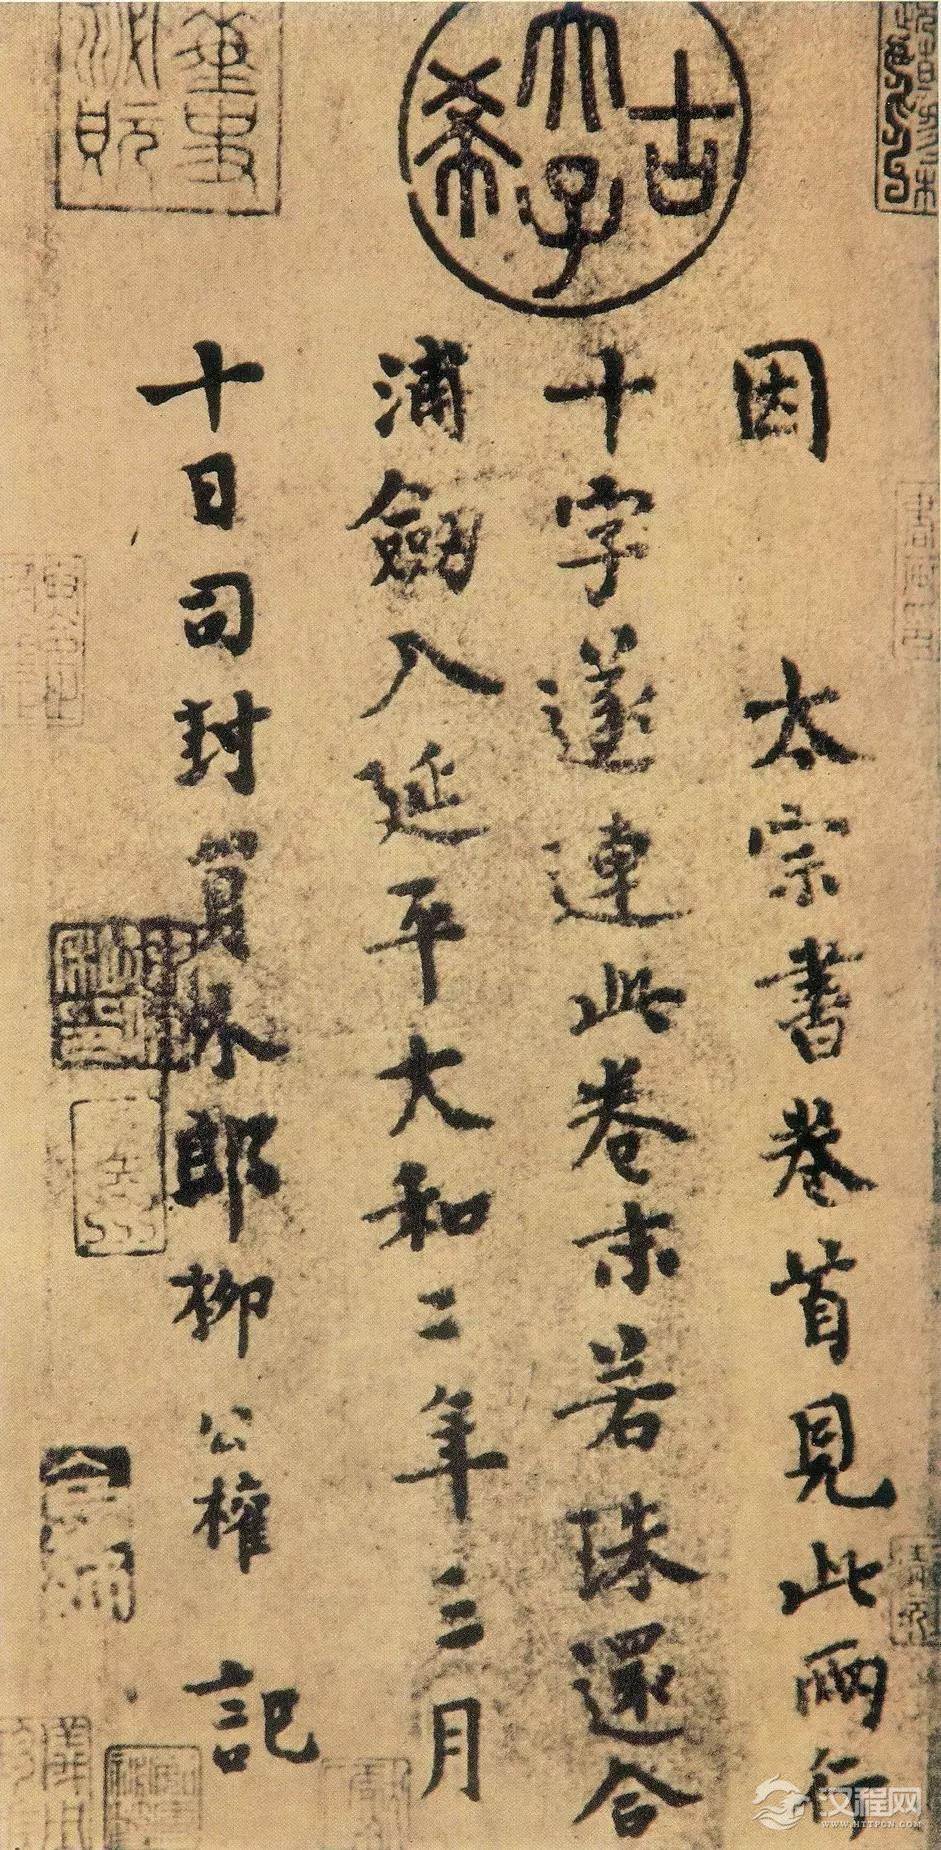 古希天子
因 太宗書卷首見此兩行
十字遂連此卷末若珠還合
浦劒入延平大和二年三月
十日司封員外郎柳公權 記
汉程网
WWW.HTTPCN.COM